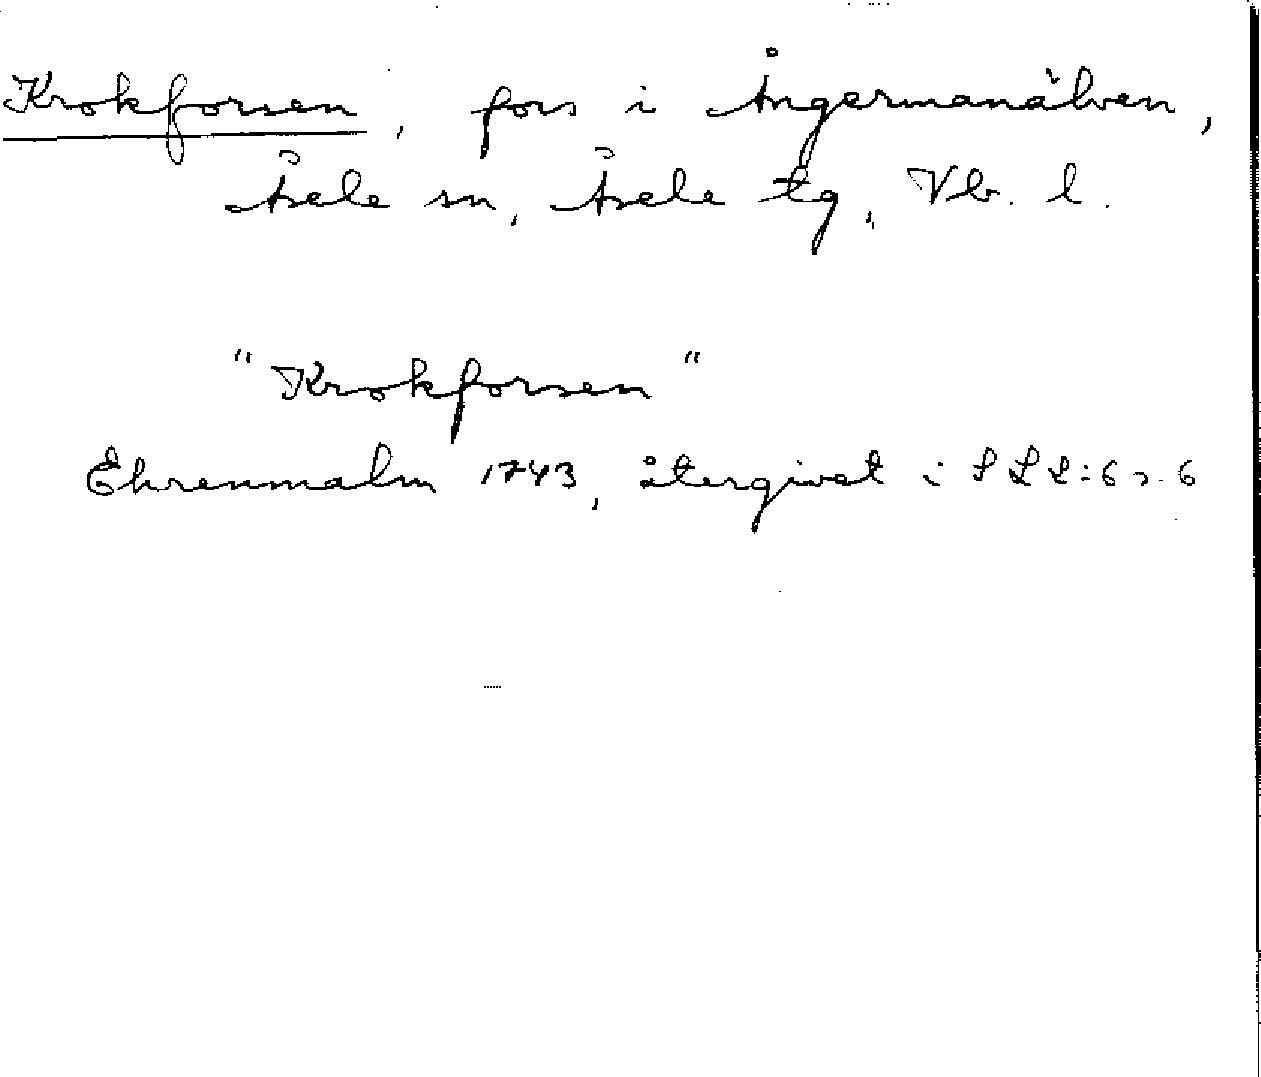 Krokforsen, fors i Ångermanälven,
Åsele sn, Åsele tg, Vb. l.
"Krokforsen"
Ehrenmalm 1743, återgivet i SLL:6 s. 6